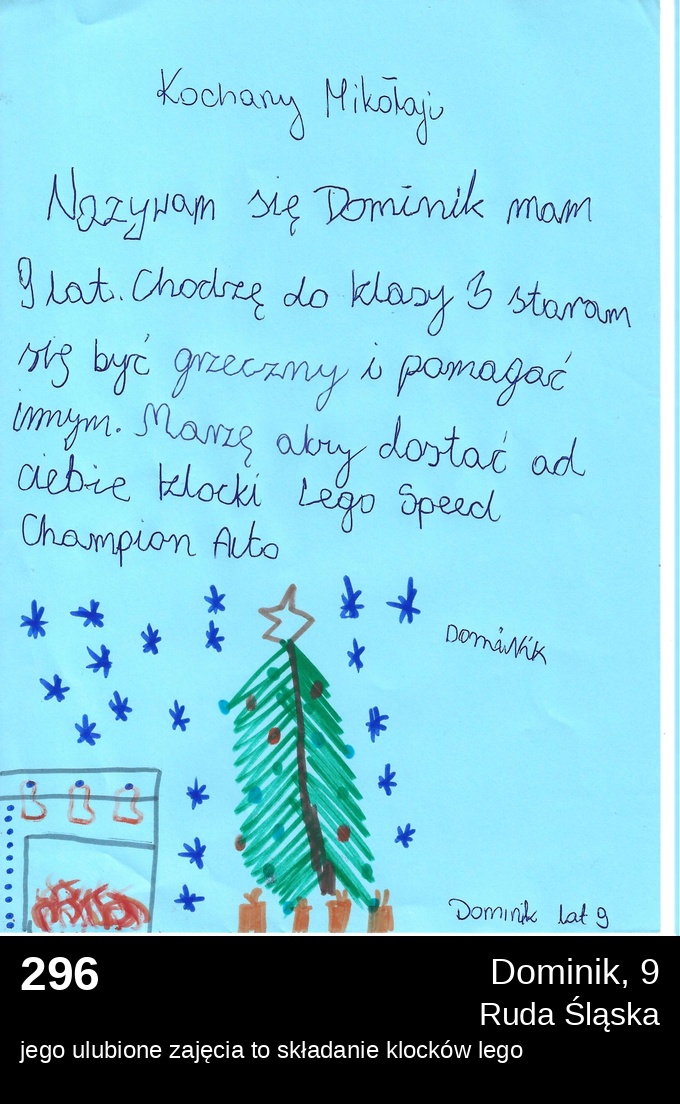 Kochany Mikołaju
Nazywam się Dominik mam
9 lat. Chodzę do klasy 3 staram
się być grzeczny i pomagać
innym. Marzę abry dostać od
ciebie klocki Lego Speed
Champion Auto
DOMiNiK
Dominik lat 9
296
Dominik, 9
Ruda Śląska
jego ulubione zajęcia to składanie klocków lego